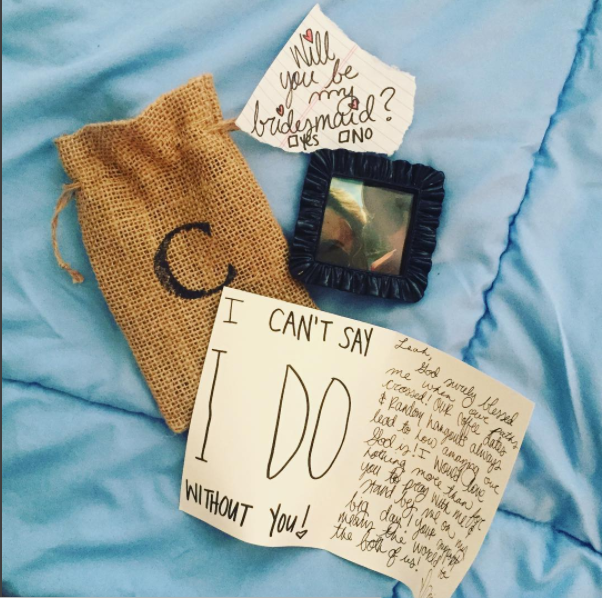 Will
you be
my
bridesmaid?
YES NO
C
I CAN'T SAY
I DO
WITHOUT YOU!
Leah,
God surely blessed
me when our paths
crossed! Our coffee dates
& random hangouts always
lead to how amazing our
God is! I would love
nothing more than for
you to pray with me &
stand by me on my
big day! Your support
means the world to
the both of us!